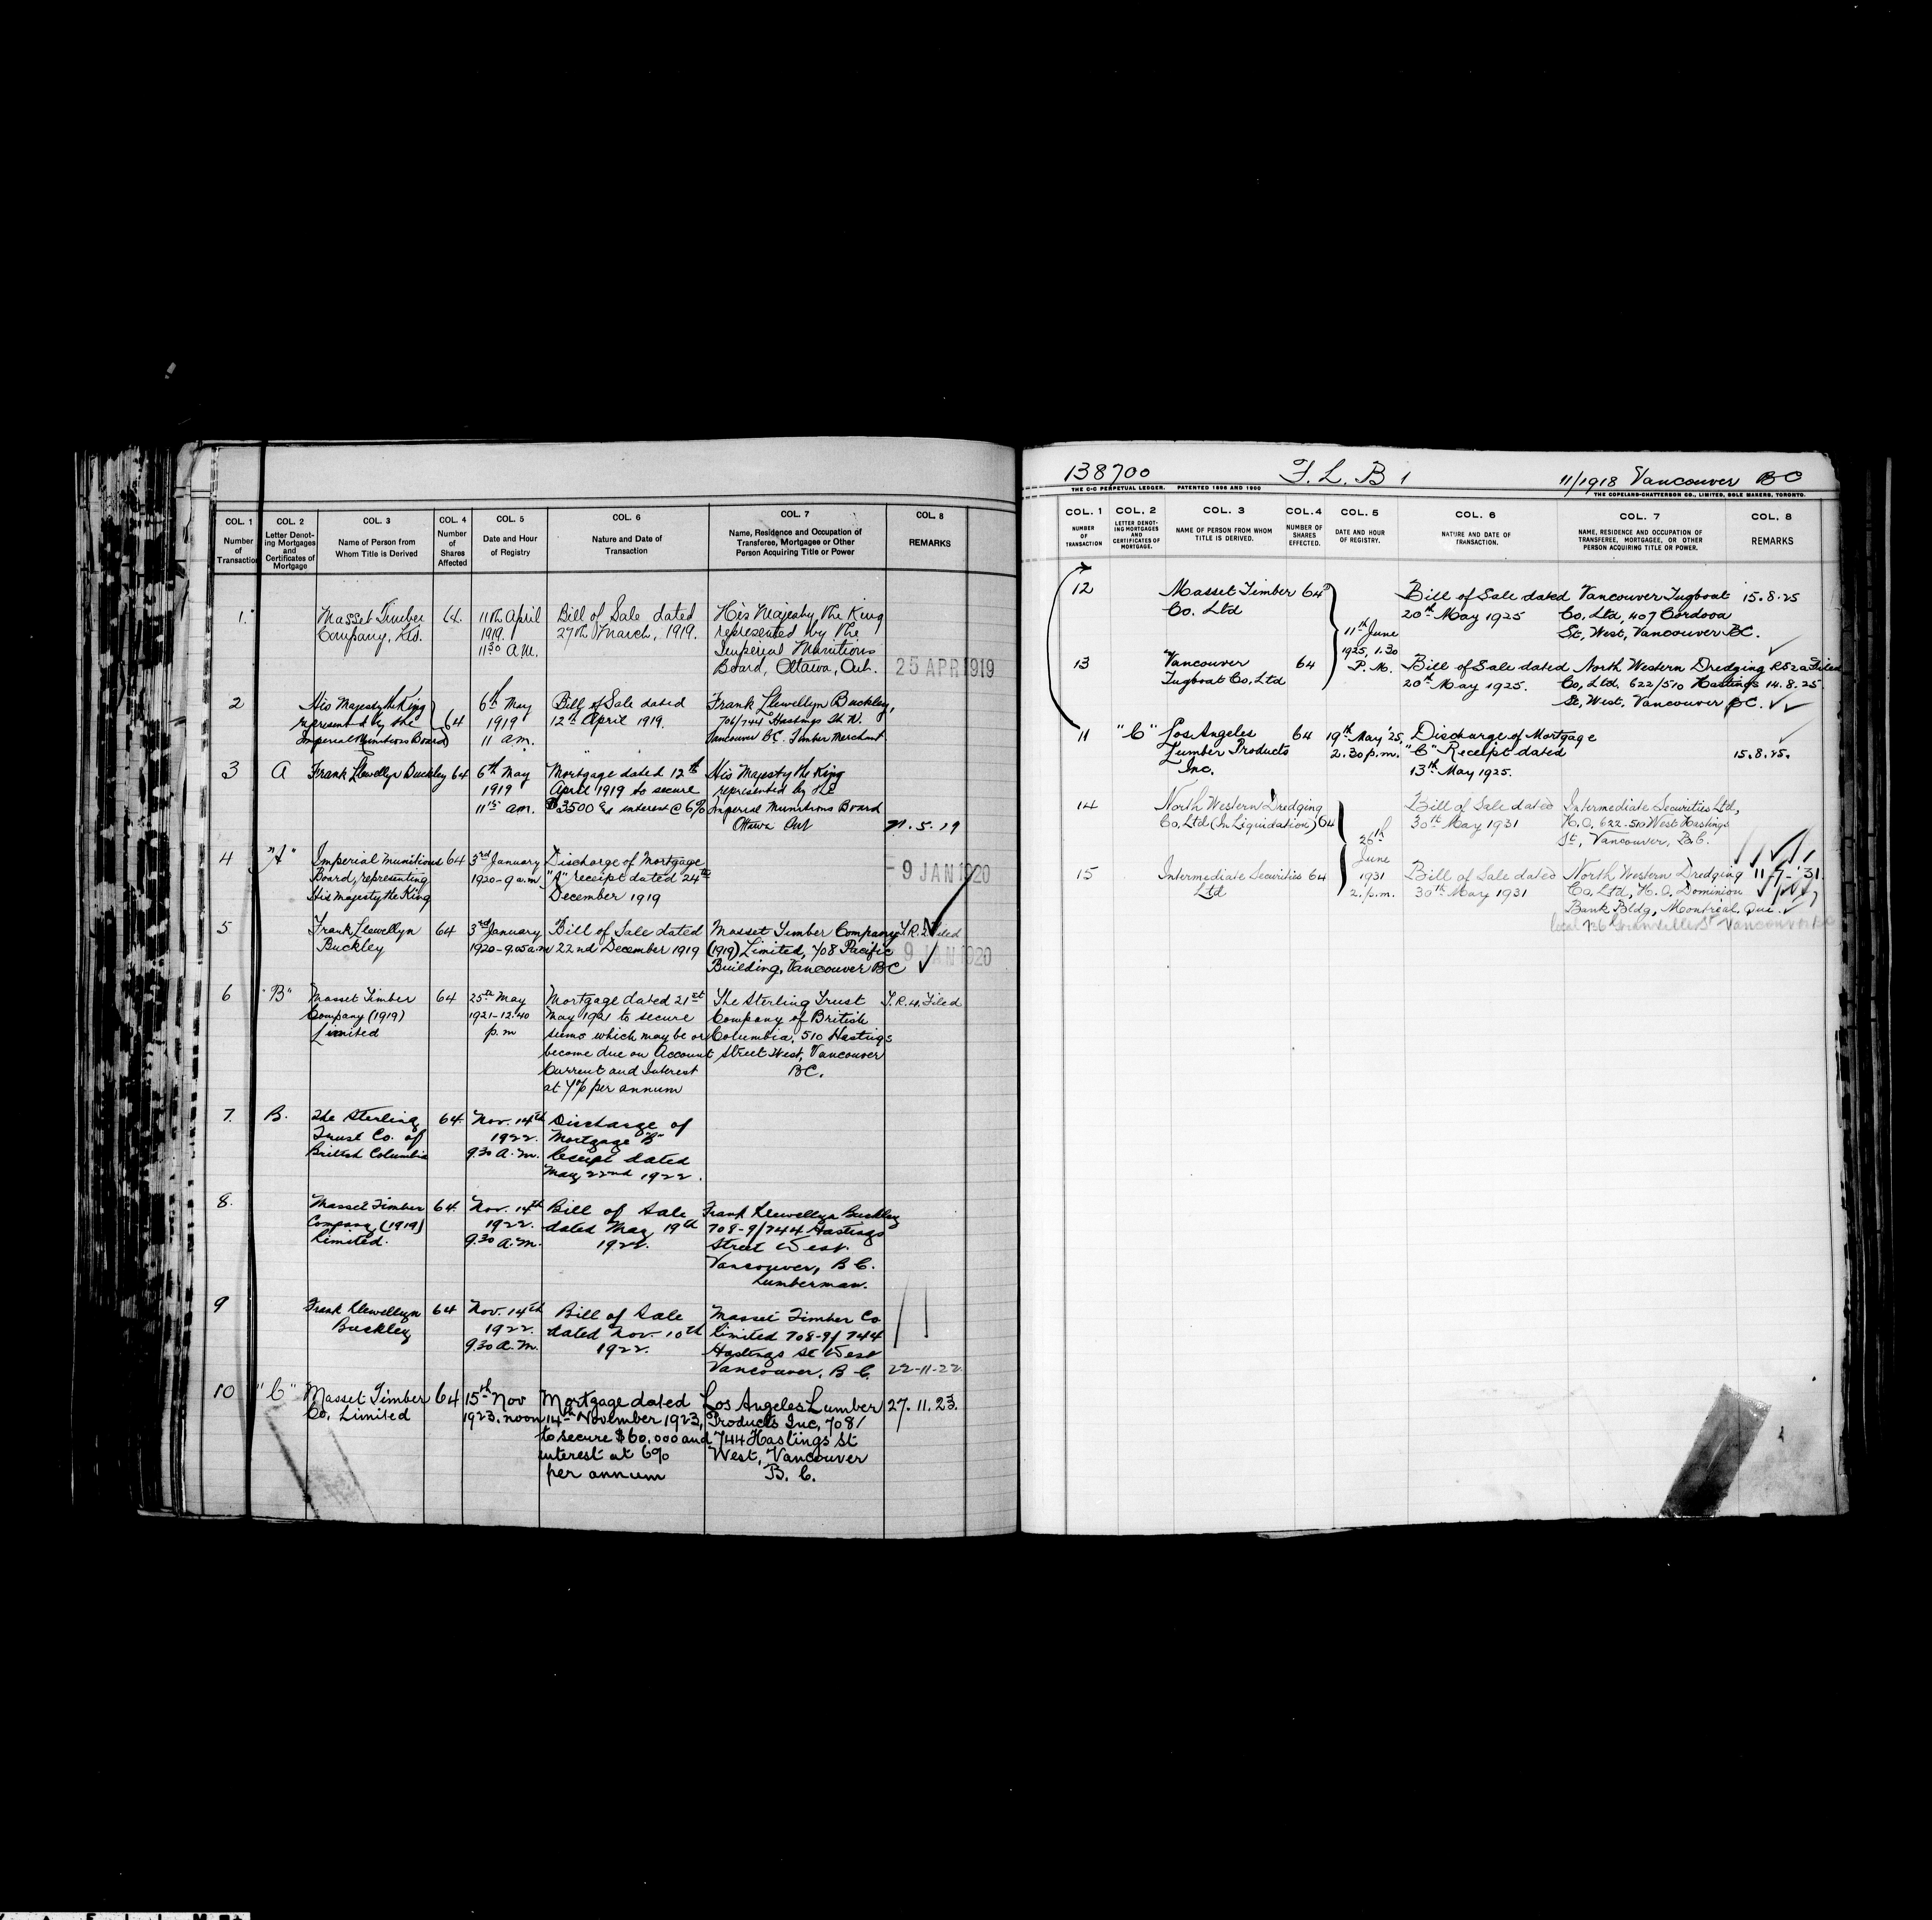 COL. 1 COL. 2 COL. 3 COL. 4 COL. 5 COL. 6 COL. 7 COL. 8
Number of Transaction
Letter Denoting Mortgages and Certificates of Mortgage
Name of Person from Whom Title is Derived
Number of Shares Affected
Date and Hour of Registry
Nature and Date of Transaction
Name, Residence and Occupation of Transferee, Mortgagee or Other Person Acquiring Title or Power
REMARKS
1. Masset Timber 64. 11th April Bill of Sale dated His Majesty The King
Company, Ltd. 1919. 27th March, 1919. represented by The
11 30 A.M. Imperial Munitions
Board, Ottawa, Ont. 25 APR 1919
2 His Majesty the King 6th May Bill of Sale dated Frank Llewellyn Buckley,
represented by the 64 1919 12th April 1919. 706/744 Hastings St. W.
Imperial Munitions Board 11 am. Vancouver BC. Timber Merchant
3 A Frank Llewellyn Buckley 64 6th May Mortgage dated 12th His Majesty the King
1919 April 1919 to secure represented by the
am. $3500 & interest @ 6% Imperial Munitions Board
Ottawa Ont .5.19
4 "A" Imperial Munitions 64 3rd January Discharge of Mortgage
Board, representing 1920-9 a.m "A" receipt dated 24th - 9 JAN 1920
His Majesty the King December 1919
5 Frank Llewellyn 64 3rd January Bill of Sale dated Masset Timber Company Filed
Buckley 1920-9.05 a.m 22nd December 1919 (1919) Limited, 708 Pacific 9 JAN 1920
Building, Vancouver BC
6 "B" Masset Timber 64 25th May Mortgage dated 21st The Sterling Trust T.R.4. Filed
Company (1919) 1921-12.40 May 1921 to secure Company of British
Limited p.m sums which may be or Columbia, 510 Hastings
become due on Account Street West, Vancouver
Current and Interest BC.
at 7% per annum
7. B. The Sterling 64. Nov. 14th Discharge of
Trust Co. of 1922. Mortgage "B"
British Columbia 9.30 A.M. Receipt dated
May 22nd 1922.
8. Masset Timber 64. Nov. 14th Bill of Sale Frank Llewellyn Buckley
Company (1919) 1922. dated May 19th 708-9/744 Hastings
Limited. 9.30 A.M. 1922. Street West.
Vancouver, B.C.
Lumberman.
9 Frank Llewellyn 64 Nov. 14th Bill of Sale Masset Timber Co
Buckley 1922. dated Nov. 10th limited 708-9/744
9.30 A.M. 1922. Hastings St West
Vancouver, B.C. 22-11-22.
10 "C" Masset Timber 64 15th Nov Mortgage dated Los Angeles Lumber 27.11.23.
Co. Limited 1923. noon 14th November 1923, Products Inc, 708/
to secure $60,000 and 744 Hastings St
interest at 6% West, Vancouver
per annum B.C.
138700 F. L. B 1 11/1918 Vancouver BC
THE C-C PERPETUAL LEDGER. PATENTED 1896 AND 1900 THE COPELAND-CHATTERSON CO., LIMITED, SOLE MAKERS, TORONTO.
COL. 1 COL. 2 COL. 3 COL. 4 COL. 5 COL. 6 COL. 7 COL. 8
NUMBER OF TRANSACTION
LETTER DENOTING MORTGAGES AND CERTIFICATES OF MORTGAGE.
NAME OF PERSON FROM WHOM TITLE IS DERIVED.
NUMBER OF SHARES EFFECTED.
DATE AND HOUR OF REGISTRY.
NATURE AND DATE OF TRANSACTION.
NAME, RESIDENCE AND OCCUPATION OF TRANSFEREE, MORTGAGEE, OR OTHER PERSON ACQUIRING TITLE OR POWER.
REMARKS
12 Masset Timber 64 Bill of Sale dated Vancouver Tugboat 15.8.25
Co. Ltd 20th May 1925 Co, Ltd, 407 Cordova
11th June St, West, Vancouver BC.
1925, 1.30
13 Vancouver 64 P.M. Bill of Sale dated North Western Dredging Filed
Tugboat Co, Ltd 20th May 1925. Co, Ltd. 622/510 Hastings 14.8.25
St, West, Vancouver BC.
11 "C" Los Angeles 64 19th May '25, Discharge of Mortgage
Lumber Products 2.30 p.m. "C" Receipt dated 15.8.25.
Inc. 13th May 1925.
14 North Western Dredging Bill of Sale dated Intermediate Securities Ltd,
Co, Ltd (In Liquidation) 64 30th May 1931 H.O. 622-510 West Hastings
26th St, Vancouver, B.C.
June
15 Intermediate Securities 64 1931 Bill of Sale dated North Western Dredging 11-7-'31.
Ltd 2. p.m. 30th May 1931 Co, Ltd, H.O. Dominion
Bank Bldg, Montreal, Que.
local Granville St Vancouver BC